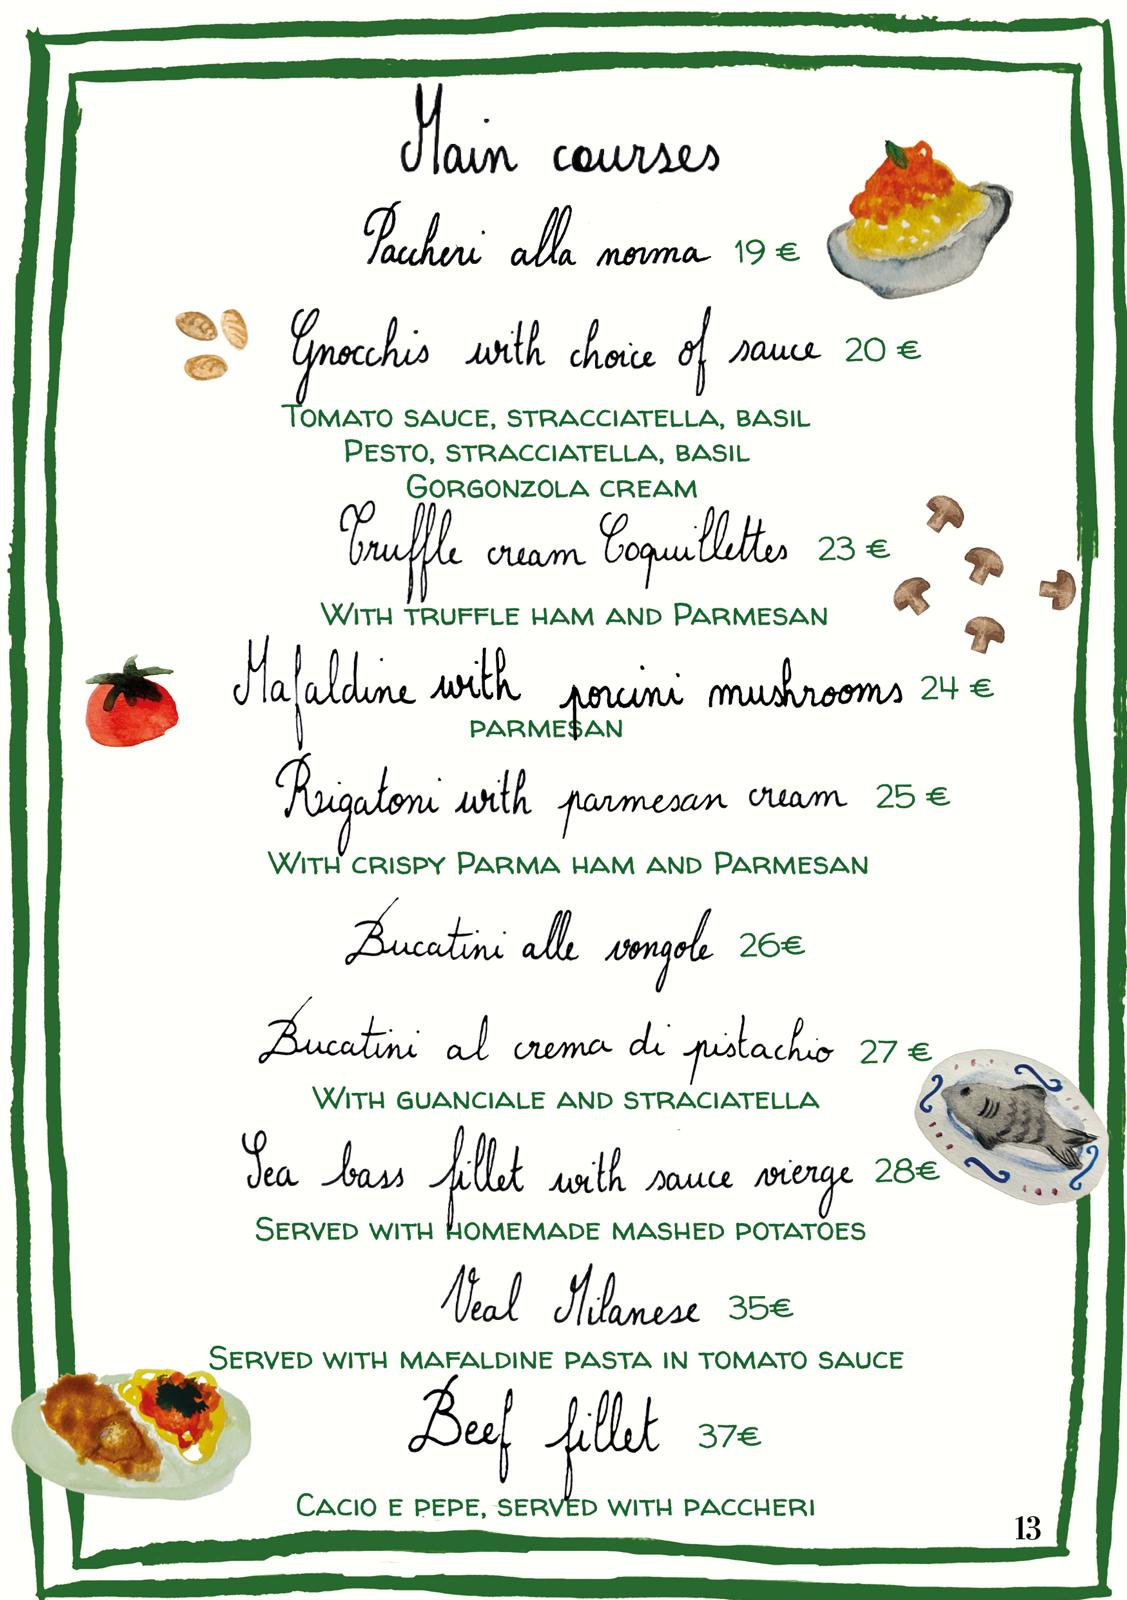 Main courses
Paccheri alla norma 19 €
Gnocchis with choice of sauce 20 €
Tomato sauce, stracciatella, basil
Pesto, stracciatella, basil
Gorgonzola cream
Truffle cream Coquillettes 23 €
With truffle ham and Parmesan
Mafaldine with porcini mushrooms 24 €
parmesan
Rigatoni with parmesan cream 25 €
With crispy Parma ham and Parmesan
Bucatini alle vongole 26€
Bucatini al crema di pistachio 27 €
With guanciale and straciatella
Sea bass fillet with sauce vierge 28€
Served with homemade mashed potatoes
Veal Milanese 35€
Served with mafaldine pasta in tomato sauce
Beef fillet 37€
Cacio e pepe, served with paccheri
13